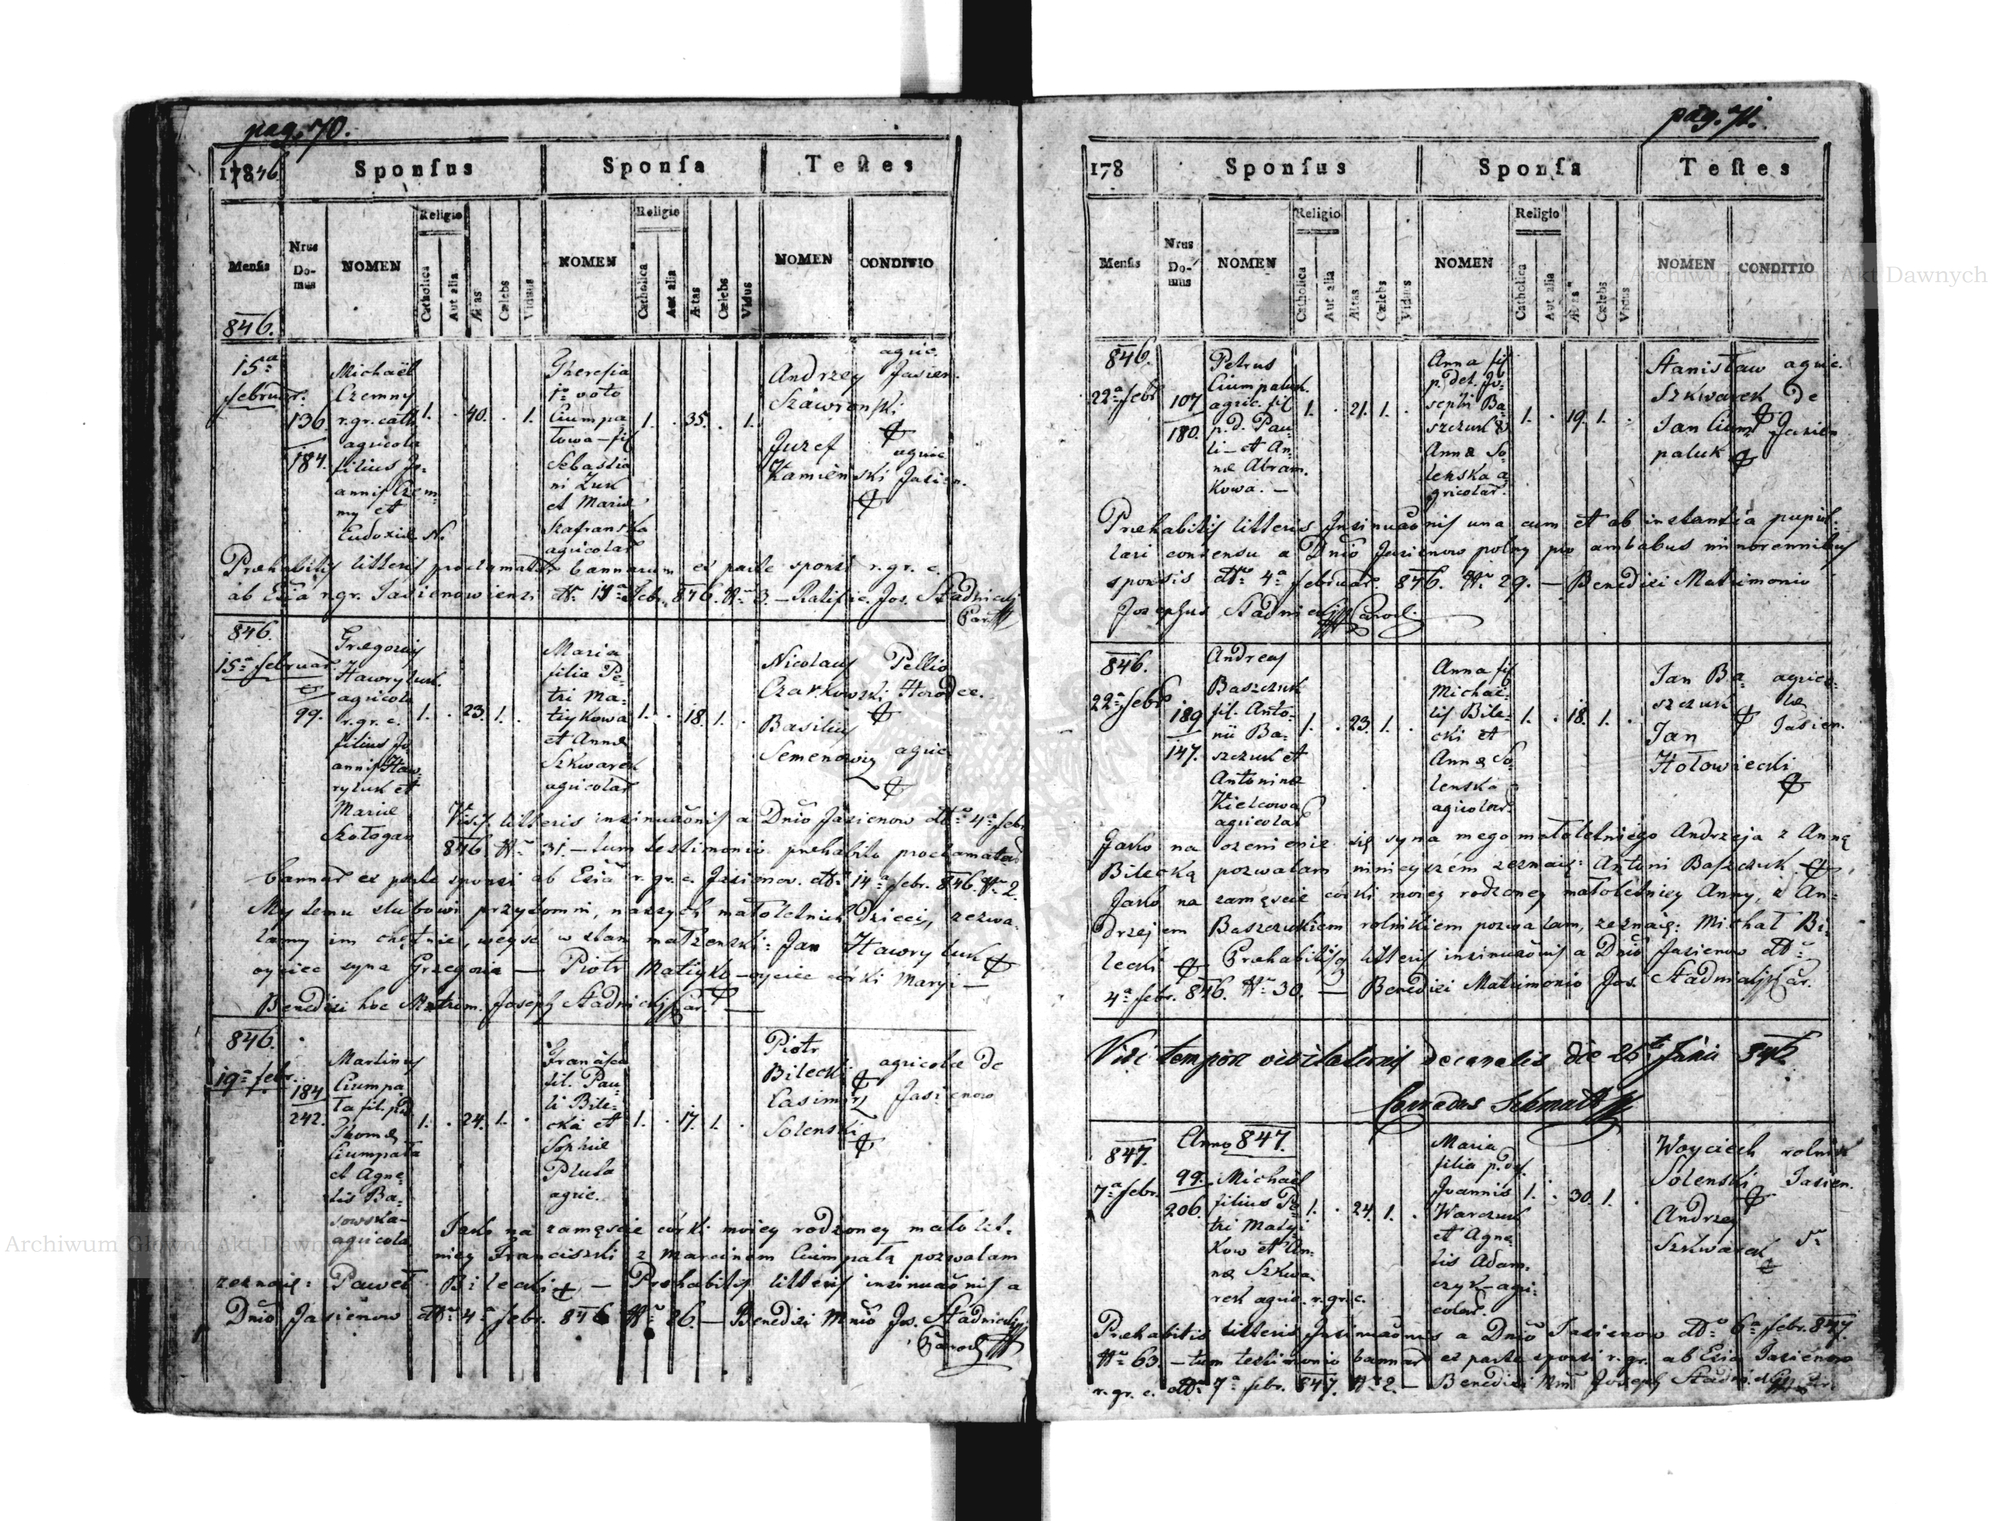 pag. 70.
17846 Sponſus Sponſa Teſtes
Menſis Nrus Domus NOMEN Religio Catholica Aut alia Ætas Cœlebs Viduus NOMEN Religio Catholica Aut alia Ætas Cœlebs Vidus NOMEN CONDITIO
846.
15ª februar.
136
184.
Michaël
Czemny
r. gr. cath.
agricola
filius Jo-
annis Czem-
my et
Eudoxiæ N.
1. . 40. . 1.
Theresia
1º voto
Ciumpa
towa – fil
Sebastia
ni Żuk
et Mariæ
Szafranska
agricolar
1. . 35. . 1.
Andrzey
Szawronski
Juzef
Kamienski
agric.
Jasien.
agric
Jasien.
Præhabitis litteris proclamatar bannorum ex parte sponsi r. gr. c.
ab Ecɫia r. gr. Jasienowiensi ddº 15ª febr. 846. Nº 3. – Ratific. Jos. Stadnicki
Par.
846.
15ª februar
99.
Gregorius
Hawryluk
agricola
r. gr. c.
filius Jo
annis Haw-
ryluk et
Mariæ
Szologan
1. . 23. 1. .
Maria
filia Pe-
tri Ma-
tiykowa
et Annæ
Szkwarek
agricolar
1. . 18. 1. .
Nicolaus
Czarkowski
Basilius
Semenowig
Pellio
Horodce.
agric
Visis litteris insinuaõnis a Dnĩo Jasienow ddº 4ª febr
846. Nº 31. – tum testimonio præhabito proclamatar
bannor ex parte sponsi ab Ecɫia r. gr. c. Jasienov. ddº 14ª febr. 846. Nº 2.
My temu slubowi przytomni, naszych małoletnich Dzieci, zezwa-
lamy im chętnie, weysć w stan małżenski: Jan Hawryluk
oyciec syna Grzegorza — Piotr Matiyko – oyciec córki Maryi —
Benedixi hoc Matrim. Joseph Stadnicki Par.
846.
19ª febr.
184
242.
Martinus
Ciumpa
ła fil. p. d.
Thomæ
Ciumpała
et Agne
tis Ba-
sowska
agricola
1. . 24. 1. .
Francisca
fil. Pau-
li Bile-
cki et
Sophiæ
Pluta
agric.
1. . 17. 1. .
Piotr
Bilecki
Casimir
Solenski
agricolæ de
Jasienow
Jako na zamęscie córki moiey rodzoney małolet-
niey Franciszki z Marcinem Ciumpałą pozwalam
zeznaię: Paweł Bilecki — Præhabitis litteris insinuaõnis a
Dnĩo Jasienow ddº 4ª febr. 846 Nº 26. – Benedixi Mnĩo Jos. Stadnicki
Paroch
pag. 71.
178 Sponſus Sponſa Teſtes
Menſis Nrus Domus NOMEN Religio Catholica Aut alia Ætas Cœlebs Vidus NOMEN Religio Catholica Aut alia Ætas Cœlebs Vidus NOMEN CONDITIO
846.
22ª febr
107
180.
Petrus
Ciumpaluk
agric. fil
p. d. Pau-
li – et An-
næ Abram-
kowa. –
1. . 21. 1. .
Anna fil
p. def. Jo-
sephi Ba-
szczuk &
Annæ So-
lenska a-
gricolar.
1. . 19. 1. .
Stanisław
Szkwarek
Jan Cium
paluk
agric.
de
Jasien
Præhabitis litteris Insinuaõnis una cum et ob instantia pupil-
lari consensu a Dnĩo Jasienow polny pro ambabus minorennibus
sponsis ddº 4ª februar. 846. Nº 29. – Benedixi Matrimonio
Josephus Stadnicki Paroch.
846.
22ª febr
189
147.
Andreas
Baszczuk
fil. Anto-
nii Ba-
szczuk et
Antoninæ
Kielcowa
agricolar
1. . 23. 1. .
Anna fil
Michae-
lis Bile-
cki et
Annæ So-
lenska
agricolar
1. . 18. 1. .
Jan Ba-
szczuk
Jan
Hołowiecki
agrico-
læ
Jasien.
Jako na ozenienie się syna mego małoletniego Andrzeja z Anną
Bilecką pozwalam ninieyszem zeznaię: Antoni Baszczuk
Jako na zamęscie córki moiey rodzoney małoletniey Anny, z An-
drzejem Baszczukiem rolnikiem pozwalam, zeznaię: Michał Bi-
lecki — Præhabitis litteris insinuaõnis a Dnĩo Jasienow ddº
4ª febr. 846. Nº 30. — Benedixi Matrimonio Jos. Stadnicki Par.
Vidi tempore visitationis decanalis die 25 Junii 846
Conradus Schmatt
847. Anno 847.
7ª febr.
99.
206.
Michael
filius Pe-
tri Matyi
kow et An-
næ Szkwa-
rek agric. r. gr. c.
1. . 24. 1. .
Maria
filia p. def.
Joannis
Warczuk
et Agne
tis Adam-
czyk – agri-
colar.
1. . 30. 1. .
Woyciech
Solenski
Andrzey
Szkwarek
rolnik
Jasien.
Præhabitis litteris Insinuaõnis a Dnĩo Jasienow ddº 6ª febr. 847.
Nº 63. – tum testimonio bannor ex parte sponsi r. gr. ab Ecɫia Jasienow
r. gr. c. ddº 7ª febr. 847. Nº 2. – Benedixi Mnĩ Joseph Stadnicki Par.
Archiwum Główne Akt Dawnych
Archiwum Główne Akt Dawnych